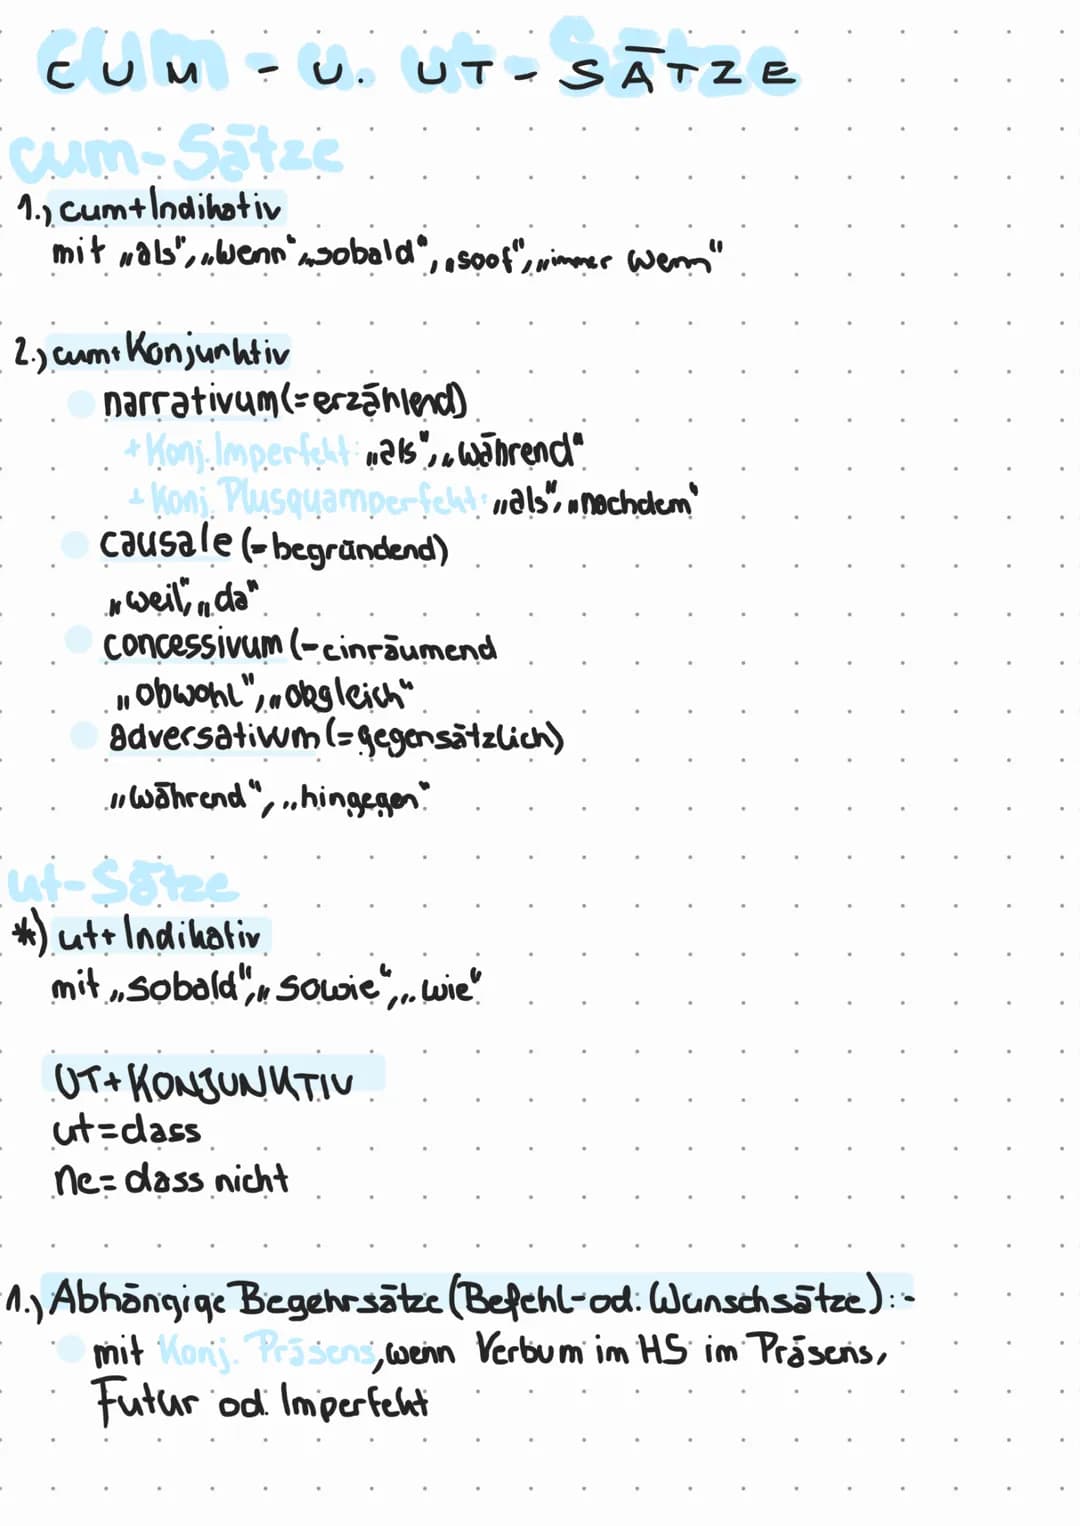 CUM - U. UT - SÄTZE
cum-Sätze
1.) cum+Indikativ
mit „als", „wenn", „sobald", „sooft", „immer wenn"
2.) cum+Konjunktiv
narrativum (=erzählend)
+Konj. Imperfekt: „als", „während"
+ Konj. Plusquamperfekt: „als", „nachdem"
causale (=begründend)
„weil", „da"
concessivum (=einräumend
„obwohl", „obgleich"
adversativum (=gegensätzlich)
„während", „hingegen"
ut-Sätze
*) ut+ Indikativ
mit „sobald", „sowie", „wie"
UT+KONJUNKTIV
ut=dass
ne= dass nicht
1.) Abhängige Begehrsätze (Befehl-od. Wunschsätze):-
mit Konj. Präsens, wenn Verbum im HS im Präsens,
Futur od. Imperfekt